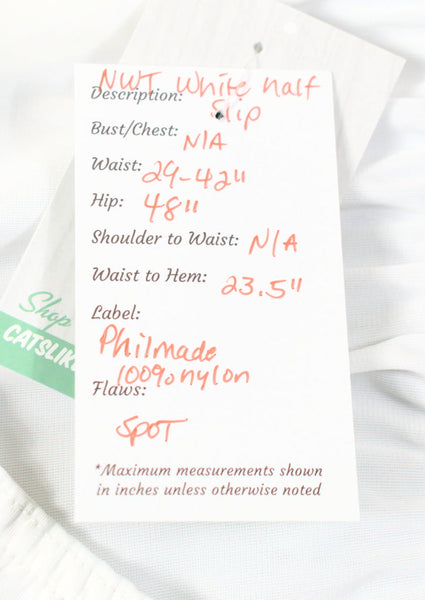 NWT White half
Description:
Slip
Bust/Chest: N/A
Waist: 29-42"
Hip: 48"
Shoulder to Waist: N/A
Waist to Hem: 23.5"
Label:
Philmade
100% nylon
Flaws:
SPOT
*Maximum measurements shown
in inches unless otherwise noted
Shop